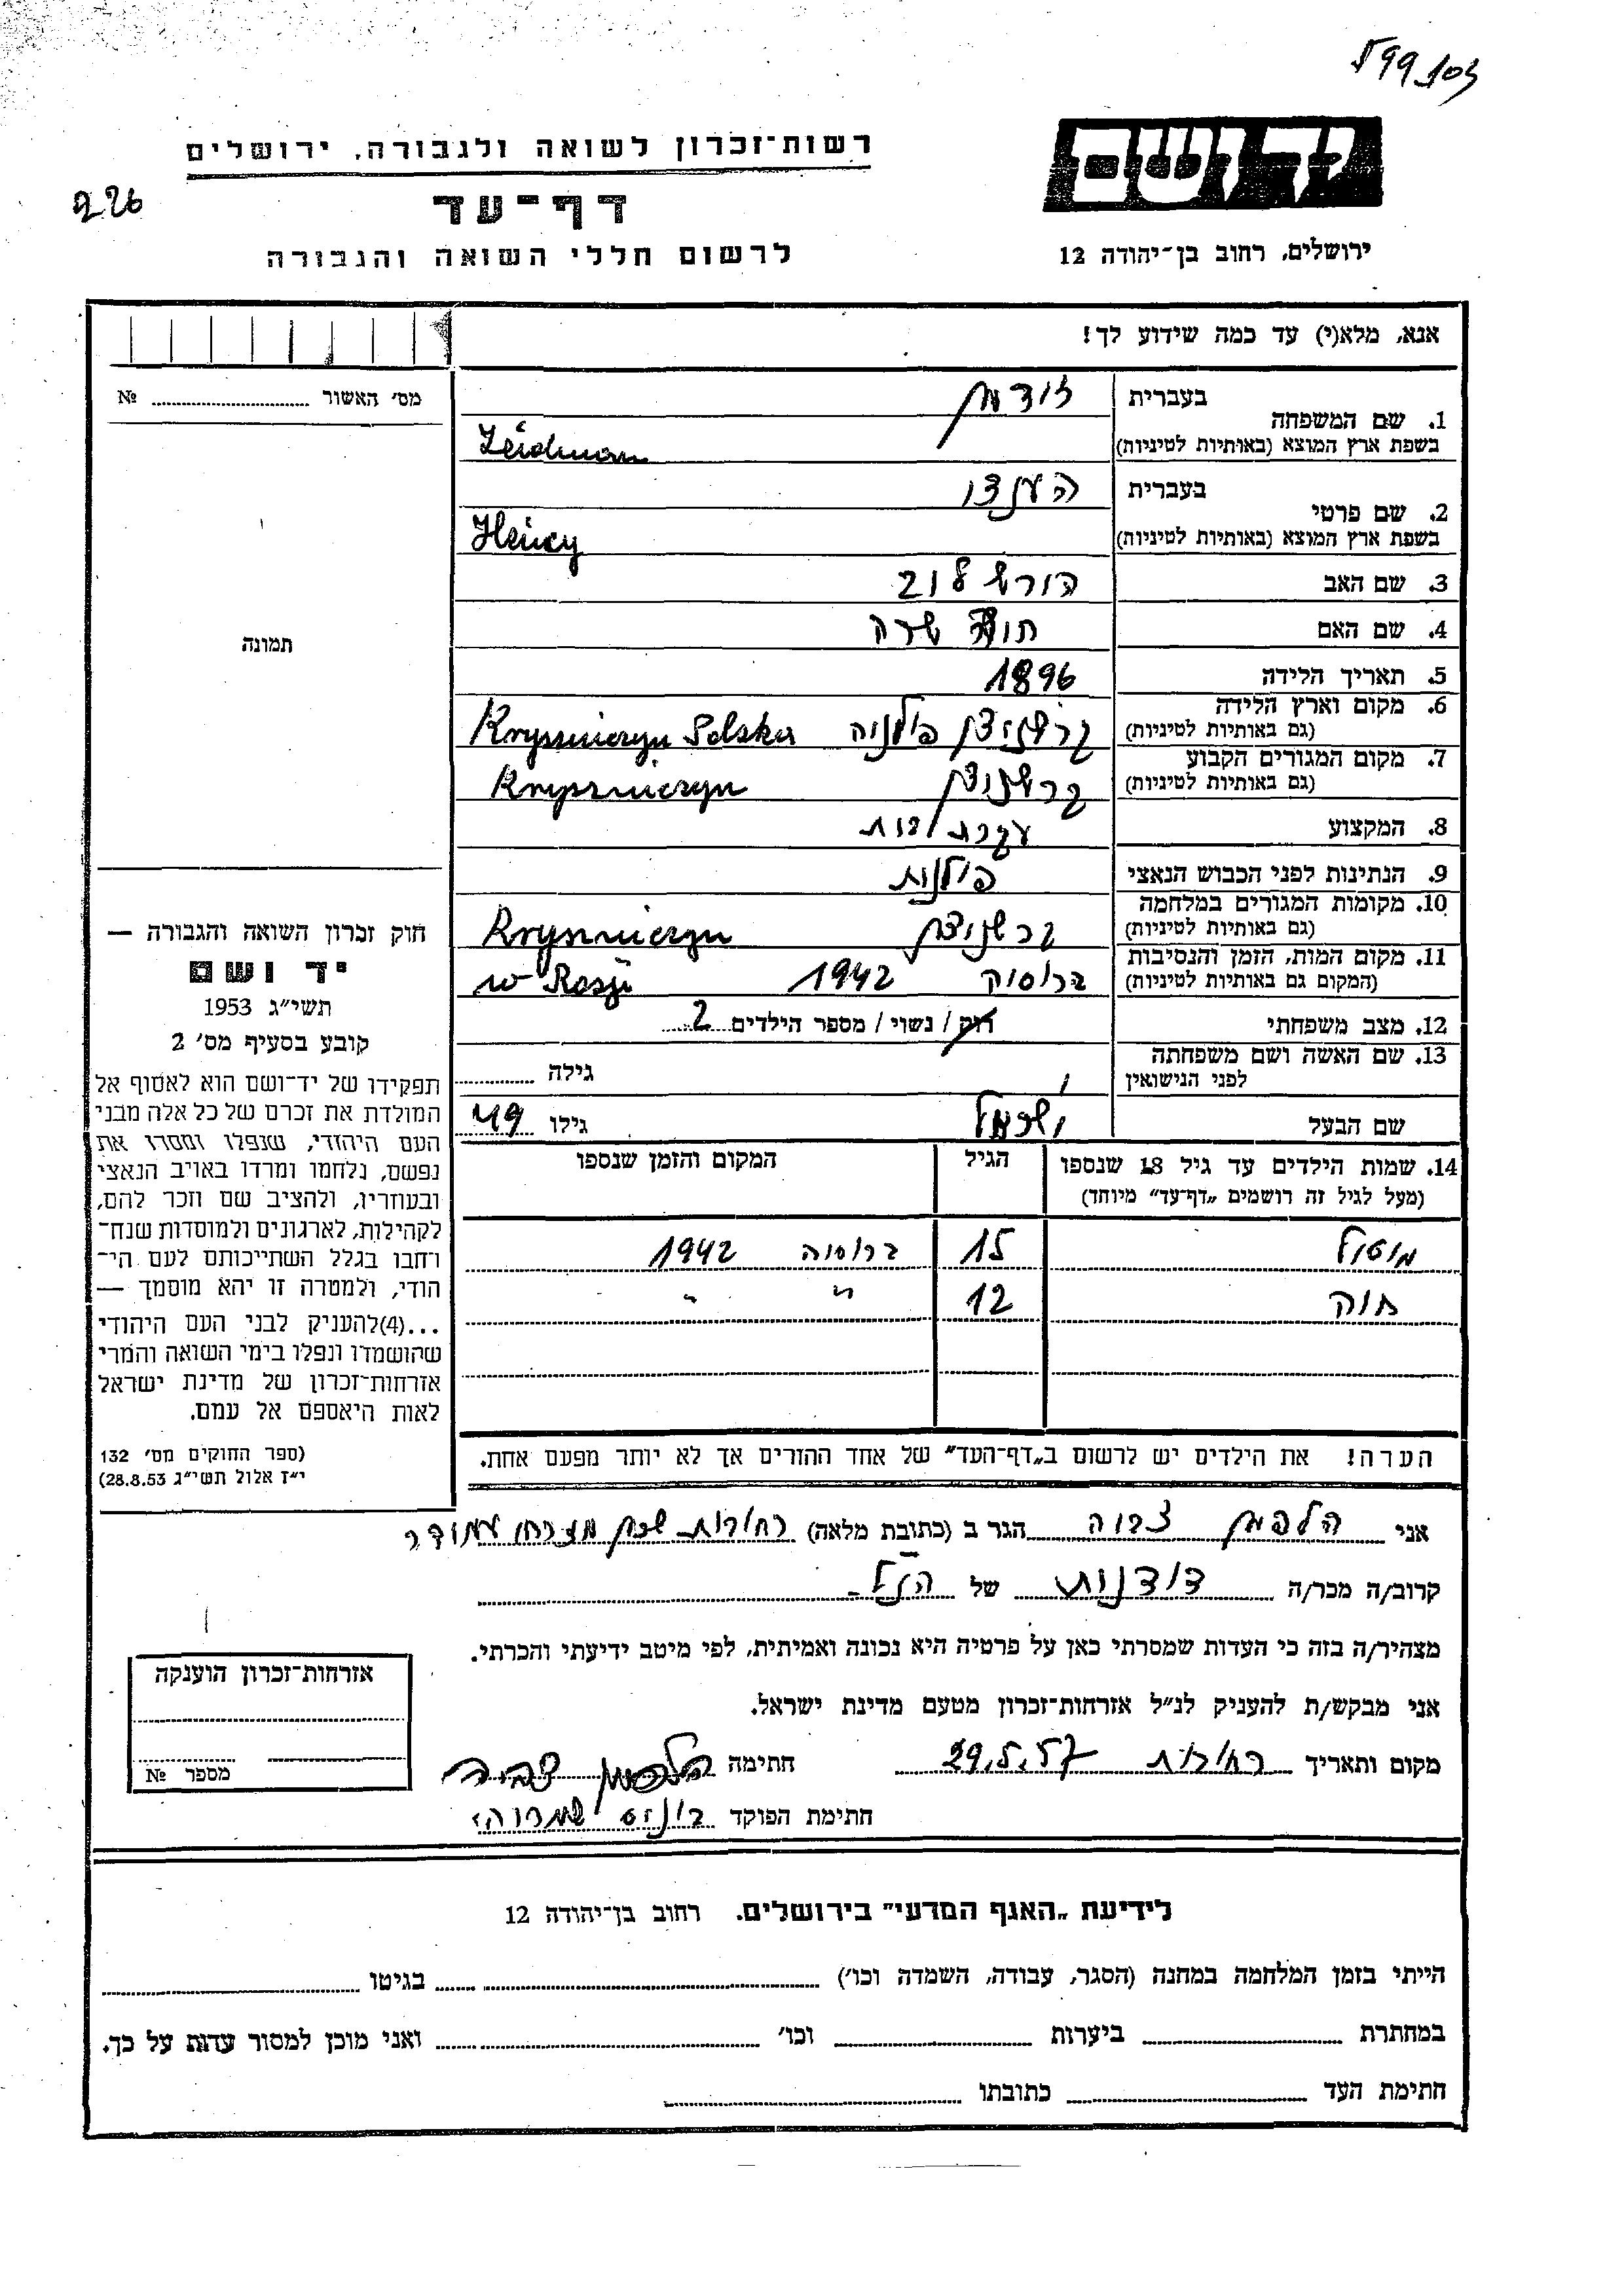 599103
יד ושם
רשות־זכרון לשואה ולגבורה, ירושלים
226
דף־עד
ירושלים, רחוב בן־יהודה 12
לרשום חללי השואה והגבורה
אנא, מלא(י) עד כמה שידוע לך!
מס' האשור № 
1. שם המשפחה בעברית זידמן
בשפת ארץ המוצא (באותיות לטיניות) Zeidman
2. שם פרטי בעברית
בשפת ארץ המוצא (באותיות לטיניות)
3. שם האב הירש ליב
4. שם האם שרה
5. תאריך הלידה 1896
6. מקום וארץ הלידה (גם באותיות לטיניות) קרשניצין פולניה Polska
7. מקום המגורים הקבוע (גם באותיות לטיניות) קרשניצין
8. המקצוע עקרת בית
9. הנתינות לפני הכבוש הנאצי פולנית
10. מקומות המגורים במלחמה (גם באותיות לטיניות) קרשניצין
11. מקום המות, הזמן והנסיבות (המקום גם באותיות לטיניות) ברוסיה 1942 w Rosji
12. מצב משפחתי רוק / נשוי / מספר הילדים 2
13. שם האשה ושם משפחתה לפני הנישואין גילה
שם הבעל גילו 49
תמונה
חוק זכרון השואה והגבורה —
יד ושם
תשי״ג 1953
קובע בסעיף מס' 2
תפקידו של יד־ושם הוא לאסוף אל
המולדת את זכרם של כל אלה מבני
העם היהודי, שנפלו ומסרו את
נפשם, נלחמו ומרדו באויב הנאצי
ובעוזריו, ולהציב שם וזכר להם,
לקהילות, לארגונים ולמוסדות שנח־
רחבו בגלל השתייכותם לעם הי־
הודי, ולמטרה זו יהא מוסמך —
...(4)להעניק לבני העם היהודי
שהושמדו ונפלו בימי השואה והמרי
אזרחות־זכרון של מדינת ישראל
לאות היאספם אל עמם.
(ספר החוקים מס' 132
י״ז אלול תשי״ג 28.8.53)
14. שמות הילדים עד גיל 18 שנספו הגיל המקום והזמן שנספו
(מעל לגיל זה רושמים „דף־עד״ מיוחד)
מוטל 15 ברוסיה 1942
חוה 12 " "
הערה! את הילדים יש לרשום ב„דף־העד״ של אחד ההורים אך לא יותר מפעם אחת.
אני הלפמן צביה הגר ב (כתובת מלאה) רחובות שכון מזרחי
קרוב/ה מכר/ה של הנ״ל
מצהיר/ה בזה כי העדות שמסרתי כאן על פרטיה היא נכונה ואמיתית, לפי מיטב ידיעתי והכרתי.
אני מבקש/ת להעניק לנ״ל אזרחות־זכרון מטעם מדינת ישראל.
מקום ותאריך רחובות 29.5.57 חתימה הלפמן צביה
חתימת הפוקד
אזרחות־זכרון הוענקה
מספר №
לידיעת „האגף המדעי״ בירושלים. רחוב בן־יהודה 12
הייתי בזמן המלחמה במחנה (הסגר, עבודה, השמדה וכו') בגיטו
במחתרת ביערות וכו' ואני מוכן למסור עדות על כך.
חתימת העד כתובתו